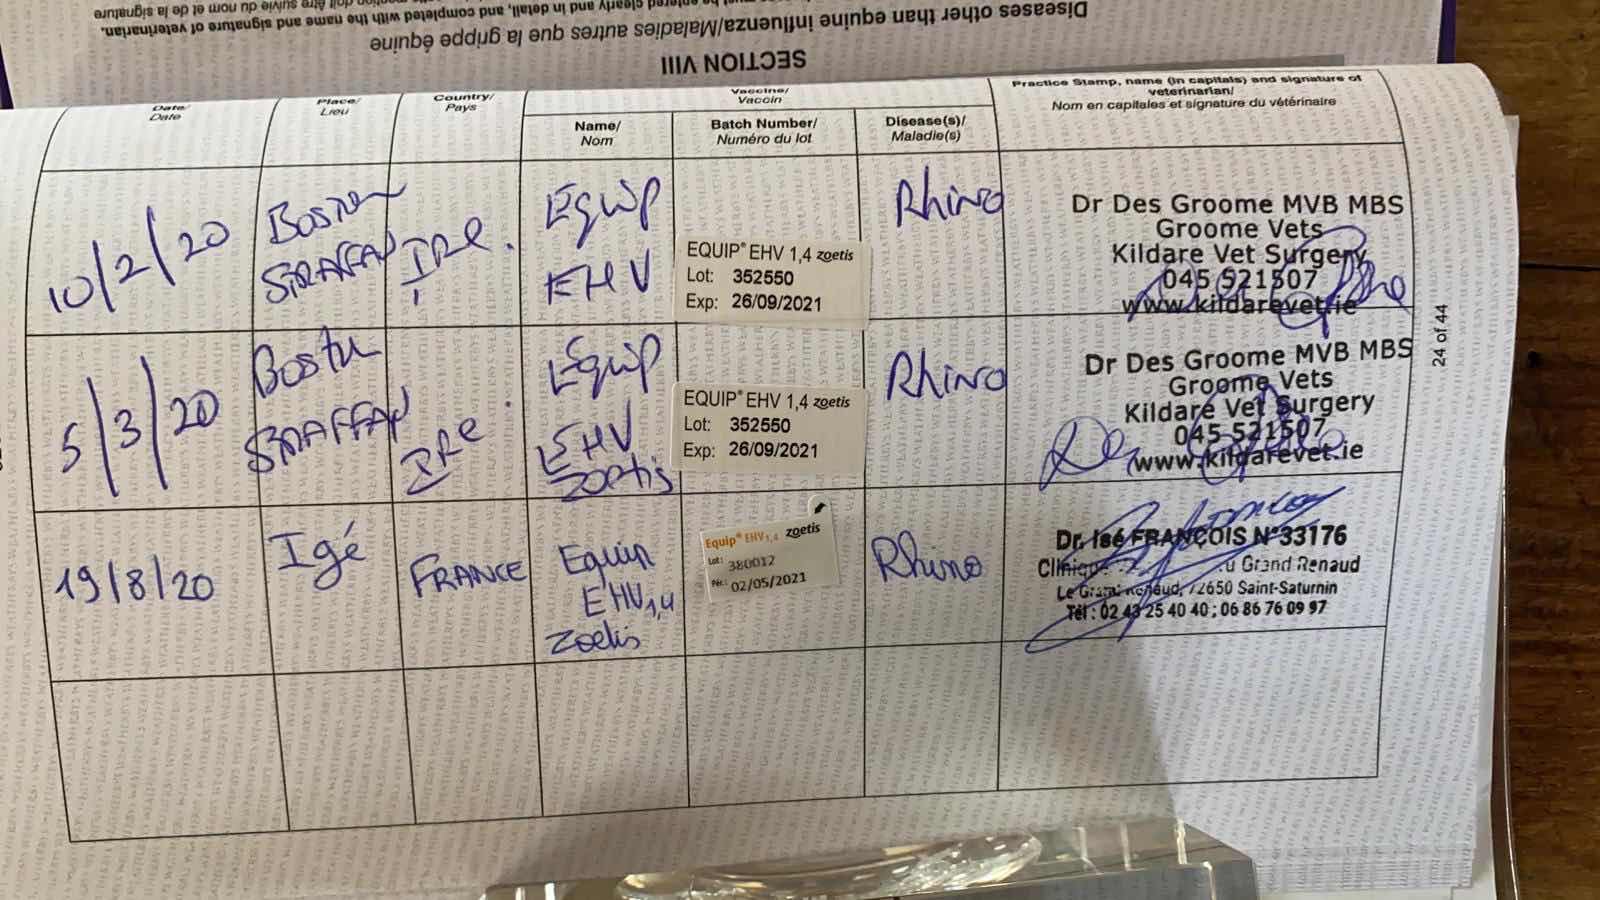 be entered clearly and in detail, and completed with the name and signature of veterinarian.
doit être suivie du nom et de la signature
Diseases other than equine influenza/Maladies autres que la grippe équine
SECTION VIII
Date/
Date
Place/
Lieu
Country/
Pays
Vaccine/
Vaccin
Name/
Nom
Batch Number/
Numéro du lot
Disease(s)/
Maladie(s)
Practice Stamp, name (in capitals) and signature of
veterinarian/
Nom en capitales et signature du vétérinaire
10/2/20
STRAFFAN
IRE.
Equip
EHV
EQUIP® EHV 1,4 zoetis
Lot: 352550
Exp: 26/09/2021
Rhino
Dr Des Groome MVB MBS
Groome Vets
Kildare Vet Surgery
045 521507
www.kildarevet.ie
5/3/20
STRAFFAN
IRE.
Equip
EHV
zoetis
EQUIP® EHV 1,4 zoetis
Lot: 352550
Exp: 26/09/2021
Rhino
Dr Des Groome MVB MBS
Groome Vets
Kildare Vet Surgery
045 521507
www.kildarevet.ie
19/8/20
Igé
FRANCE
Equip
EHV1,4
zoetis
Equip® EHV1,4 zoetis
Lot: 380012
Pér.: 02/05/2021
Rhino
Dr. Isé FRANÇOIS N°33176
Clinique du Grand Renaud
Le Grand Renaud, 72650 Saint-Saturnin
Tél : 02 43 25 40 40 ; 06 86 76 09 97
24 of 44